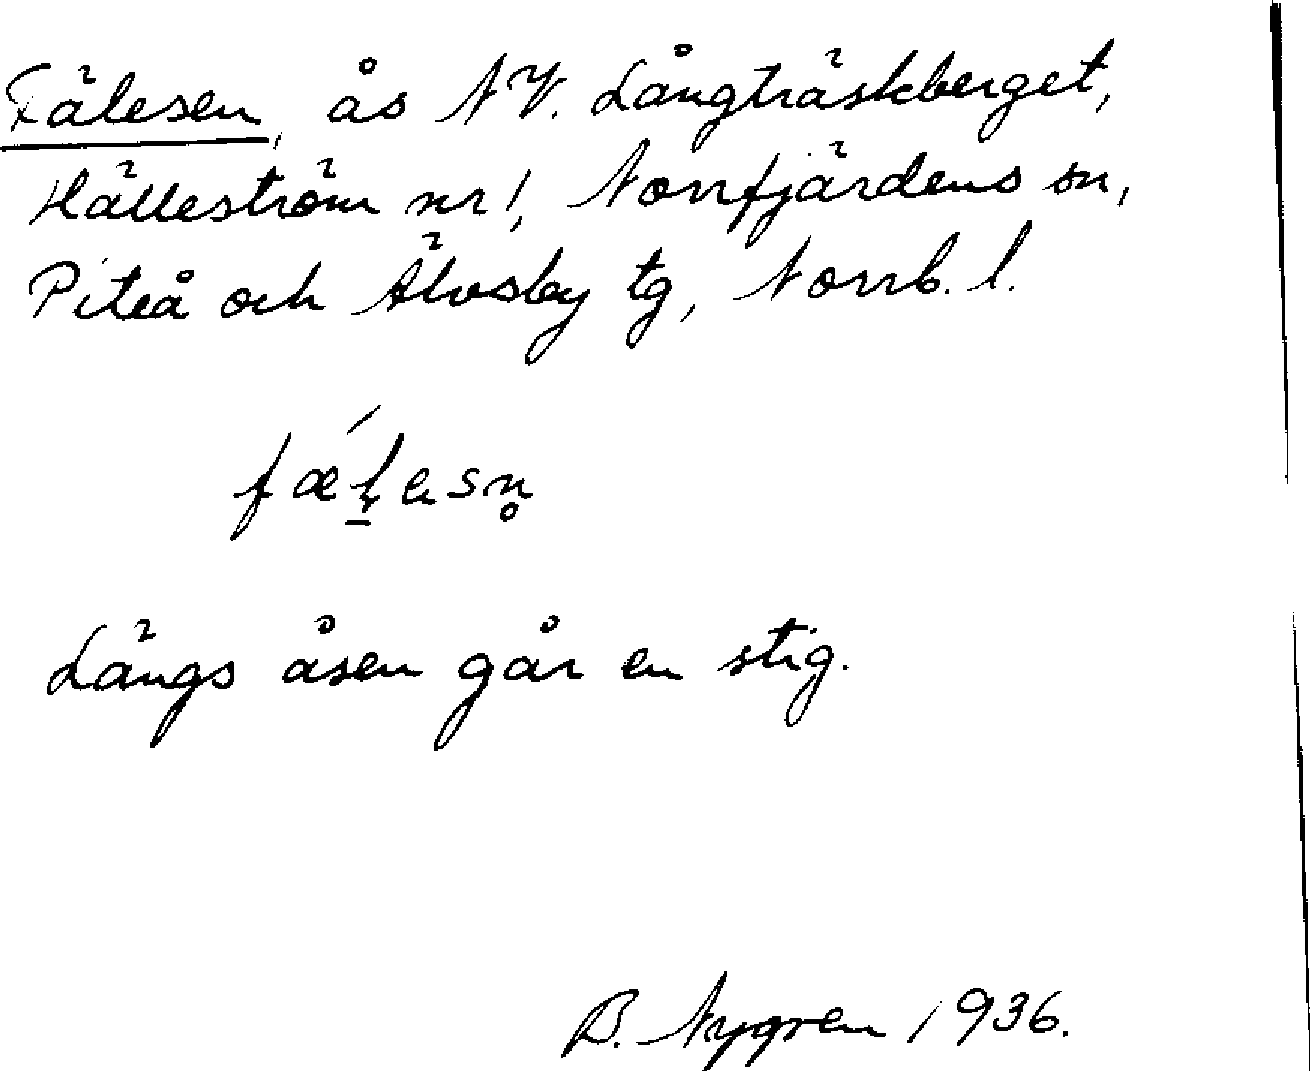 Fälesen, ås NV. Långträskberget,
Hälleström nr 1, Norrfjärdens sn,
Piteå och Älvsby tg, Norrb. l.
fǽḻesn̥
Längs åsen går en stig.
B. Nygren 1936.